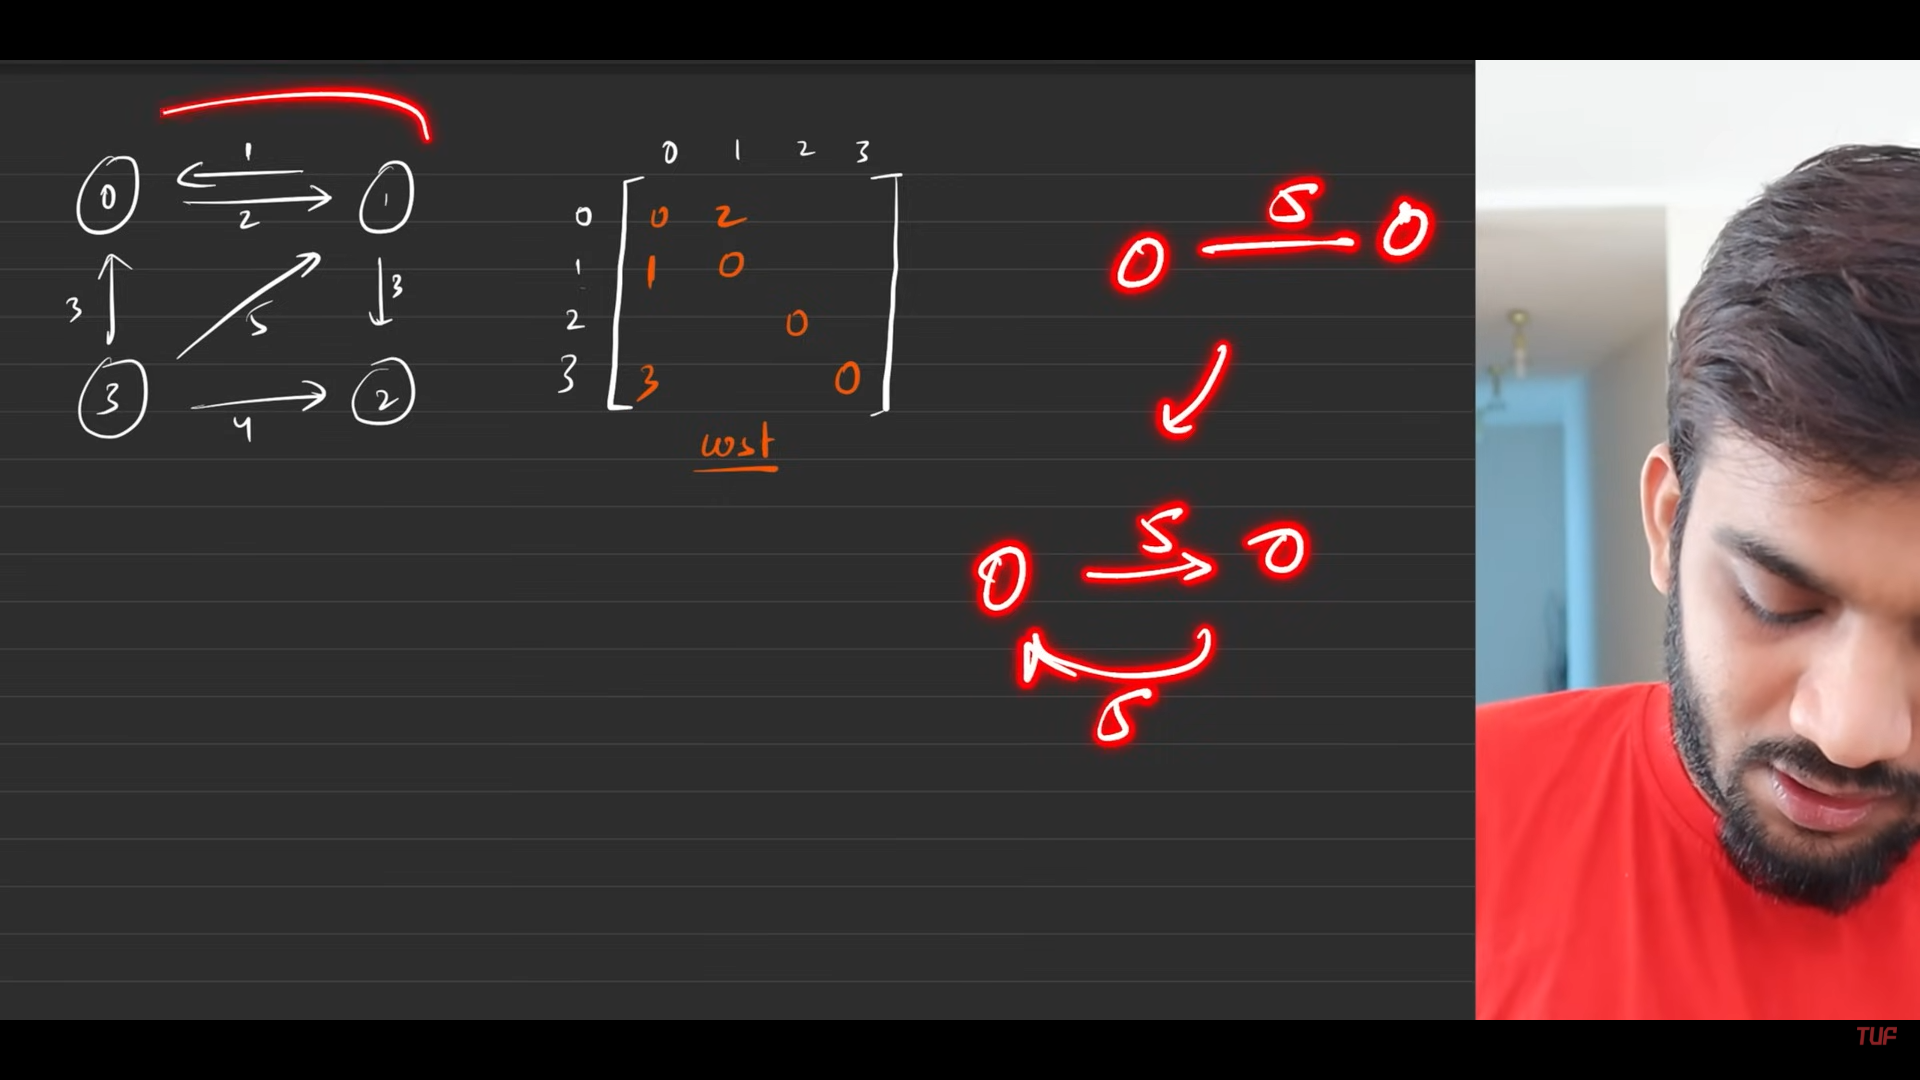 1
0 1
2
3 5 3
3 2
4
0 1 2 3
0 0 2
1 1 0
2 0
3 3 0
cost
0 5 0
0 5 0
5
TUF